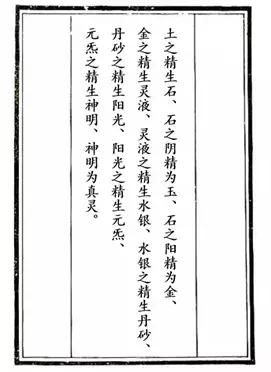 土之精生石、石之阴精为玉、石之阳精为金、
金之精生灵液、灵液之精生水银、水银之精生丹砂、
丹砂之精生阳光、阳光之精生元炁、
元炁之精生神明、神明为真灵。